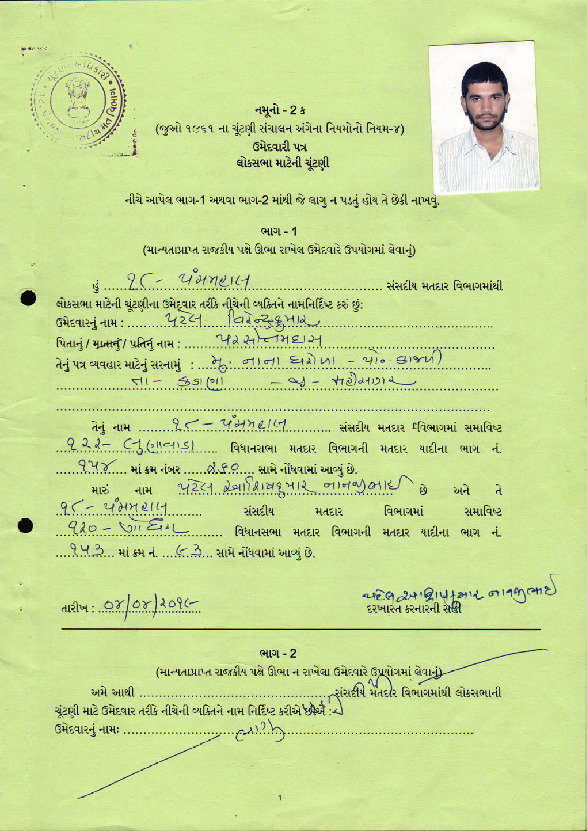 નમૂનો - 2 ક
(જુઓ ૧૯૬૧ ના ચૂંટણી સંચાલન અંગેના નિયમોનો નિયમ-૪)
ઉમેદવારી પત્ર
લોકસભા માટેની ચૂંટણી
નીચે આપેલ ભાગ-1 અથવા ભાગ-2 માંથી જે લાગુ ન પડતું હોય તે છેકી નાખવું.
ભાગ - 1
(માન્યતાપ્રાપ્ત રાજકીય પક્ષે ઊભા રાખેલ ઉમેદવારે ઉપયોગમાં લેવાનું)
હું ૧૮ - પંચમહાલ સંસદીય મતદાર વિભાગમાંથી
લોકસભા માટેની ચૂંટણીના ઉમેદવાર તરીકે નીચેની વ્યક્તિને નામનિર્દિષ્ટ કરું છું:
ઉમેદવારનું નામ : પટેલ વિરેન્દ્રકુમાર
પિતાનું / માતાનું / પતિનું નામ : પરસોત્તમદાસ
તેનું પત્ર વ્યવહાર માટેનું સરનામું : મુ. નાના - પો.
તા - કડાણા - જી - મહીસાગર
તેનું નામ ૧૮ - પંચમહાલ સંસદીય મતદાર વિભાગમાં સમાવિષ્ટ
૧૨૨ - લુણાવાડા વિધાનસભા મતદાર વિભાગની મતદાર યાદીના ભાગ નં.
૧૫૪ માં ક્રમ નંબર સામે નોંધવામાં આવ્યું છે.
મારું નામ પટેલ નાનજીભાઈ છે અને તે
૧૮ - પંચમહાલ સંસદીય મતદાર વિભાગમાં સમાવિષ્ટ
૧૨૦ - વિધાનસભા મતદાર વિભાગની મતદાર યાદીના ભાગ નં.
૧૫૩ માં ક્રમ નં. ૯૩ સામે નોંધવામાં આવ્યું છે.
પટેલ નાનજીભાઈ
તારીખ : ૦૪/૦૪/૨૦૧૯ દરખાસ્ત કરનારની સહી
ભાગ - 2
(માન્યતાપ્રાપ્ત રાજકીય પક્ષે ઊભા ન રાખેલા ઉમેદવારે ઉપયોગમાં લેવાનું)
અમે આથી સંસદીય મતદાર વિભાગમાંથી લોકસભાની
ચૂંટણી માટે ઉમેદવાર તરીકે નીચેની વ્યક્તિને નામ નિર્દિષ્ટ કરીએ છીએ :
ઉમેદવારનું નામઃ
1